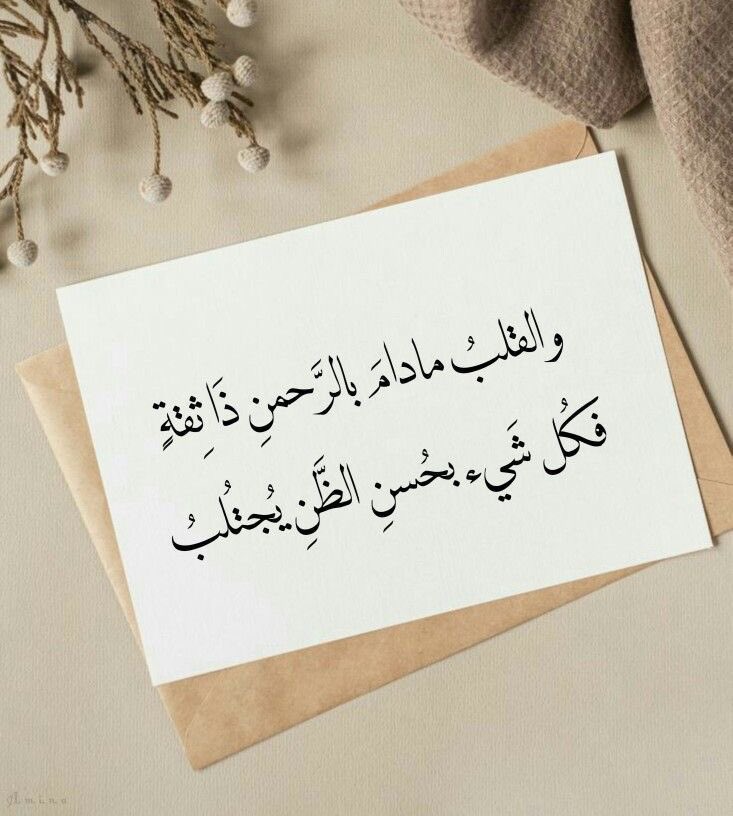 والقلبُ مادامَ بالرَّحمنِ ذَا ثِقةٍ
فَكُل شَيء بحُسنِ الظَّنِ يُجتلُبُ
Amina